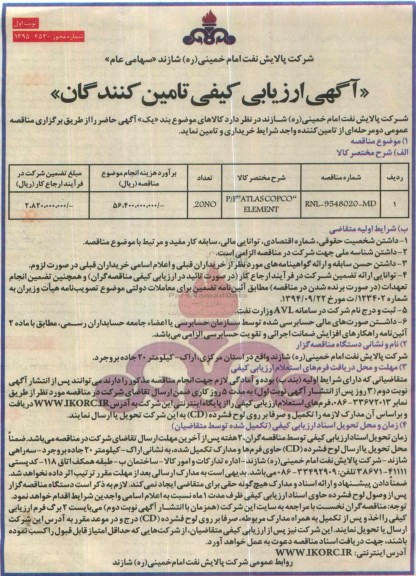 نوبت اول
شماره مجوز ۴۵۳۰-۱۳۹۵
شرکت پالایش نفت امام خمینی(ره) شازند «سهامی عام»
«آگهی ارزیابی کیفی تامین کنندگان»
شرکت پالایش نفت امام خمینی(ره) شازند در نظر دارد کالاهای موضوع بند «یک» آگهی حاضر را از طریق برگزاری مناقصه
عمومی دو مرحله‌ای از تامین کننده واجد شرایط خریداری و تامین نماید.
۱) موضوع مناقصه
الف) شرح مختصر کالا
ردیف شماره مناقصه شرح مختصر کالا تعداد برآورد هزینه انجام موضوع مناقصه (ریال) مبلغ تضمین شرکت در فرآیند ارجاع کار (ریال)
۱ RNL-9548020-MD P/F"ATLASCOPCO" ELEMENT 20NO. ۵۶،۴۰۰،۰۰۰،۰۰۰/- ۲،۸۲۰،۰۰۰،۰۰۰/-
ب) شرایط اولیه متقاضی
۱- داشتن شخصیت حقوقی، شماره اقتصادی، توانایی مالی، سابقه کار مفید و مرتبط با موضوع مناقصه.
۲- داشتن شناسه ملی جهت شرکت در مناقصه الزامی است.
۳- داشتن حسن سابقه و ارائه گواهینامه‌های مورد نظر از خریداران قبلی و اعلام اسامی خریداران قبلی در صورت لزوم.
۴- توانایی ارائه تضمین شرکت در فرآیند ارجاع کار (در صورت تائید در ارزیابی کیفی مناقصه‌گران) و همچنین تضمین انجام
تعهدات (در صورت برنده شدن در مناقصه) مطابق آئین‌نامه تضمین برای معاملات دولتی موضوع تصویب‌نامه هیأت وزیران به
شماره ۱۲۳۴۰۲ مورخ ۱۳۹۴/۰۹/۲۲
۵- ثبت و درج نام شرکت در سامانه AVL وزارت نفت.
۶- داشتن صورت‌های مالی حسابرسی شده توسط سازمان حسابرسی یا اعضاء جامعه حسابداران رسمی، مطابق با ماده ۲
آئین‌نامه راهکارهای افزایش ضمانت اجرائی و تقویت حسابرسی الزامی می‌باشد.
۲) نام و نشانی دستگاه مناقصه‌گزار
شرکت پالایش نفت امام خمینی(ره) شازند واقع در استان مرکزی، اراک- کیلومتر ۲۰ جاده بروجرد.
۳) مهلت و محل دریافت فرم‌های استعلام ارزیابی کیفی
متقاضیانی که دارای شرایط اولیه (بند ب) بوده و آمادگی لازم جهت انجام مناقصه مذکور را دارند می‌توانند پس از انتشار آگهی
نوبت دوم
WWW.IKORC.IR
و براساس آن مدارک لازم را تکمیل و صرفا بر روی لوح فشرده (CD) به این شرکت تحویل یا ارسال نمایند.
۴) زمان و محل تحویل اسناد ارزیابی کیفی (تکمیل شده توسط متقاضیان)
زمان تحویل اسناد ارزیابی کیفی توسط مناقصه‌گران، ۲ هفته پس از آخرین مهلت ارسال تقاضای شرکت در مناقصه می‌باشد. ضمناً
محل تحویل یا ارسال لوح فشرده (CD) حاوی فرم‌ها و مدارک تکمیل شده، به نشانی اراک- کیلومتر ۲۰ جاده بروجرد- سه‌راهی
شازند- شرکت پالایش نفت امام خمینی(ره) شازند- اداره تدارکات و امور کالا- ساختمان ب- طبقه همکف اتاق ۱۱۸- کدپستی
ضمنا دادن پیشنهاد و ارائه اسناد و مدارک هیچگونه حقی برای متقاضی ایجاد نمی‌کند. لازم به ذکر است دستگاه مناقصه‌گزار
پس از وصول لوح فشرده حاوی اسناد ارزیابی کیفی ظرف مدت ۱ ماه نسبت به اعلام اسامی واجدین شرایط اقدام خواهد نمود.
توجه: مناقصه‌گران نخست با مراجعه به سایت این شرکت (همزمان با انتشار آگهی نوبت دوم) می‌بایست ۲ برگ فرم ارزیابی
کیفی را اخذ و پس از تکمیل به همراه مدارک مربوطه، صرفا بر روی لوح فشرده (CD) درج و در موعد مقرر به آدرس این شرکت
تحویل یا ارسال نمایند. این شرکت نیز پس از ارزیابی کیفی متقاضیان، از شرکت‌هایی که حداقل امتیاز قابل قبول را کسب نموده
باشند، جهت دریافت اسناد مناقصه دعوت به عمل خواهد آورد.
آدرس اینترنتی: WWW.IKORC.IR
روابط عمومی شرکت پالایش نفت امام خمینی(ره) شازند